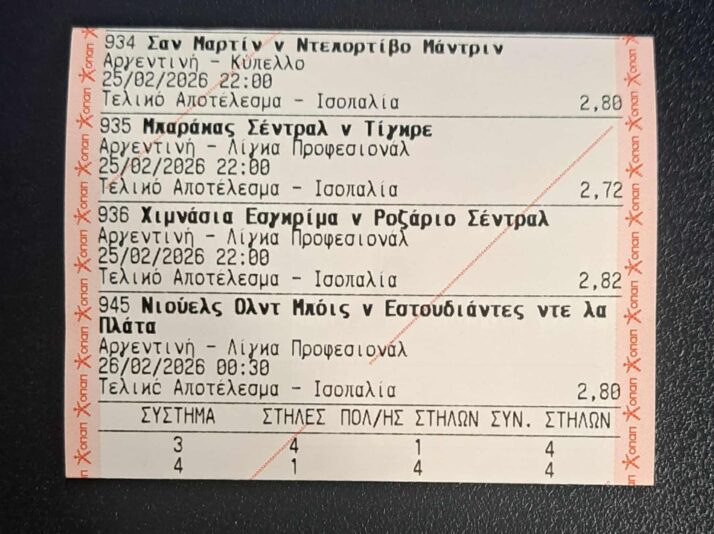 934 Σαν Μαρτίν v Ντεπορτίβο Μάντριν
Αργεντινή - Κύπελλο
25/02/2026 22:00
Τελικό Αποτέλεσμα - Ισοπαλία 2,80
935 Μπαράκας Σέντραλ v Τίγκρε
Αργεντινή - Λίγκα Προφεσιονάλ
25/02/2026 22:00
Τελικό Αποτέλεσμα - Ισοπαλία 2,72
936 Χιμνάσια Εσγκρίμα v Ροζάριο Σέντραλ
Αργεντινή - Λίγκα Προφεσιονάλ
25/02/2026 22:00
Τελικό Αποτέλεσμα - Ισοπαλία 2,82
945 Νιούελς Ολντ Μπόις v Εστουδιάντες ντε λα
Πλάτα
Αργεντινή - Λίγκα Προφεσιονάλ
26/02/2026 00:30
Τελικό Αποτέλεσμα - Ισοπαλία 2,80
ΣΥΣΤΗΜΑ ΣΤΗΛΕΣ ΠΟΛ/ΗΣ ΣΤΗΛΩΝ ΣΥΝ. ΣΤΗΛΩΝ
3 4 1 4
4 1 4 4
οπαπ
οπαπ
οπαπ
οπαπ
οπαπ
οπαπ
οπαπ
οπαπ
οπαπ
οπαπ
οπαπ
οπαπ